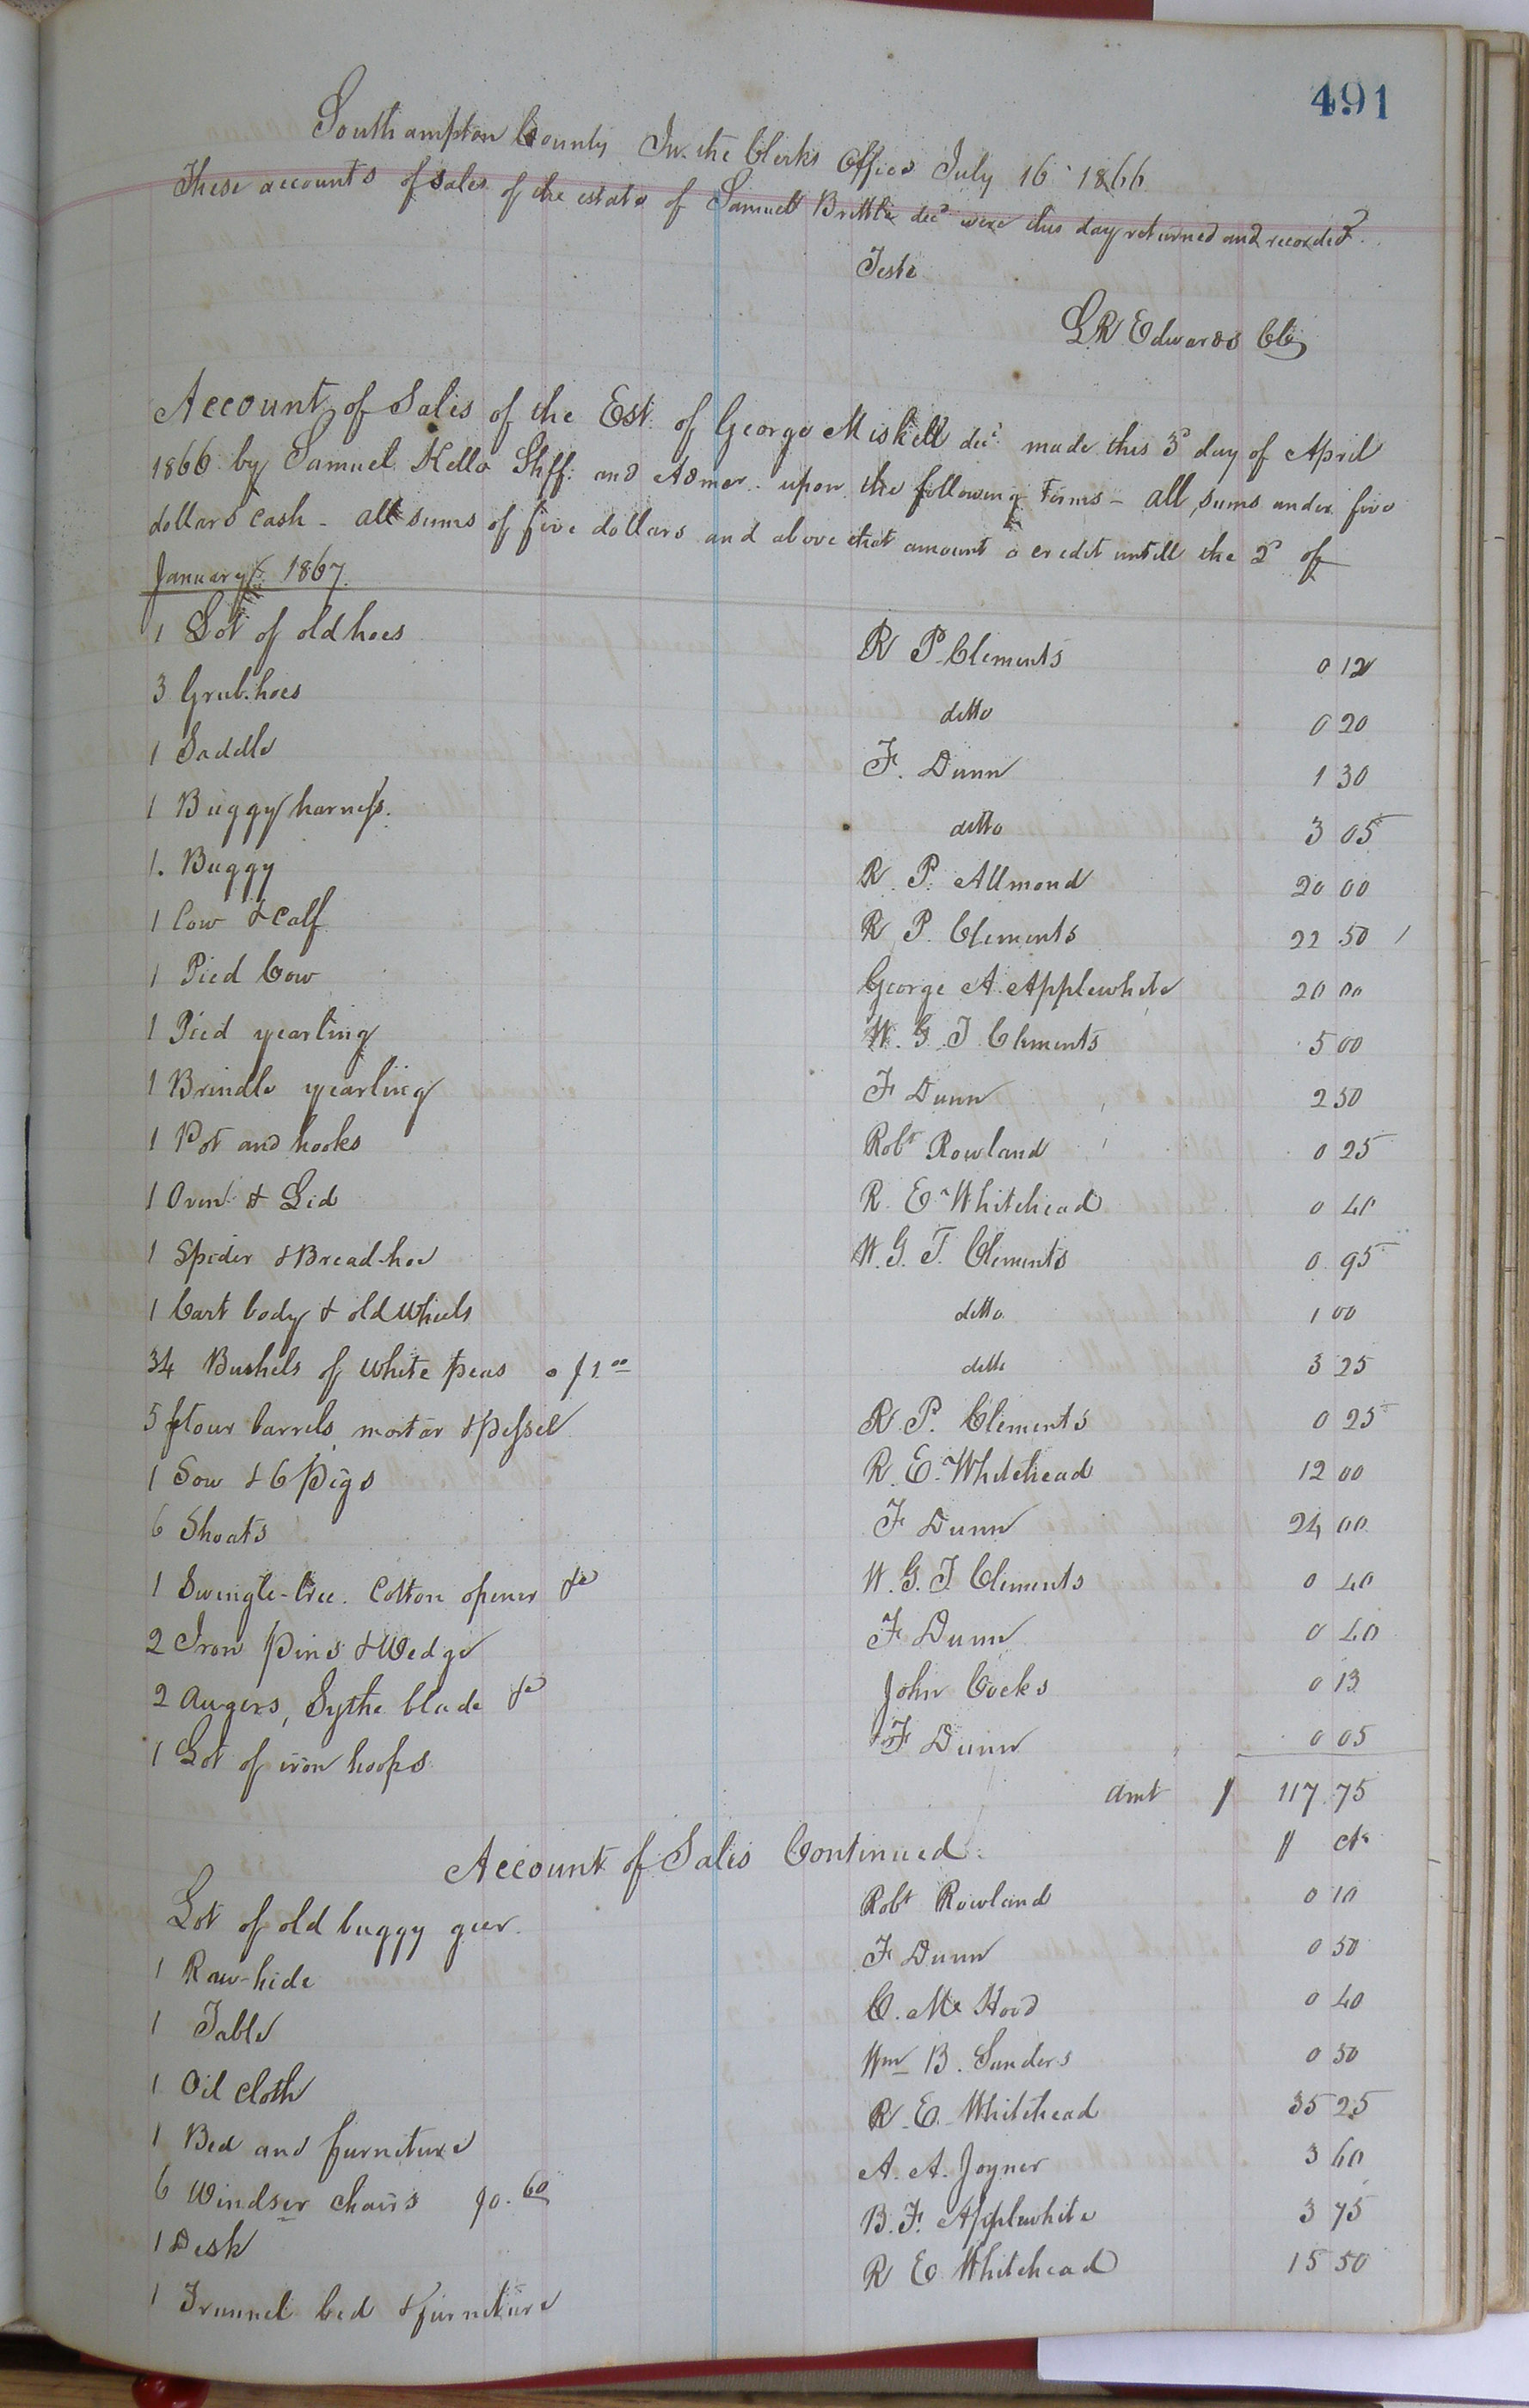 491
Southampton County In the Clerks Office July 16 1866
These accounts of sales of the estate of Samuel Brittle decd were this day returned and recorded.
Teste
L R Edwards Clk
Account of Sales of the Est. of George Miskell decd. made this 3d day of April
1866 by Samuel Kello Shff. and Admor. upon the following terms - all sums under five
dollars cash - all sums of five dollars and above that amount a credit untill the 2d of
January 1867.
1 Lot of old hoes R P Clements 0 12
3 Grub. hoes ditto 0 20
1 Saddle F. Dunn 1 30
1 Buggy harness. ditto 3 05
1. Buggy R. P. Allmond 20 00
1 Cow & calf R. P. Clements 22 50
1 Pied Cow George A. Applewhite 20 00
1 Pied yearling W. G. T Clements 5 00
1 Brindle yearling F Dunn 2 50
1 Pot and hooks Robt Rowland 0 25
1 Oven & Lid R. E. Whitehead 0 40
1 Spider & Bread-hoe W. G. T. Clements 0 95
1 Cart body & old wheels ditto 1 00
34 Bushels of white peas $1 00 ditto 3 25
5 flour barrels, mortar & pessel R. P. Clements 0 25
1 Sow & 6 Pigs R. E. Whitehead 12 00
6 Shoats F Dunn 24 00
1 Swingle-tree. Cotton opener &c W. G. T. Clements 0 40
2 Iron Pins & Wedge F Dunn 0 40
2 Augers, Sythe blade &c John Cocks 0 13
1 Lot of iron hoops F Dunn 0 05
Amt $ 117 75
Account of Sales Continued. $ cts
Lot of old buggy geer. Robt Rowland 0 10
1 Raw-hide F Dunn 0 50
1 Table C. Mc Hood 0 40
1 Oil cloth Wm B. Sanders 0 50
1 Bed and furniture R. E. Whitehead 35 25
6 Windser chairs $0. 60 A. A. Joyner 3 60
1 Desk B. F. Applewhite 3 75
1 Trunnel bed & furniture R E Whitehead 15 50